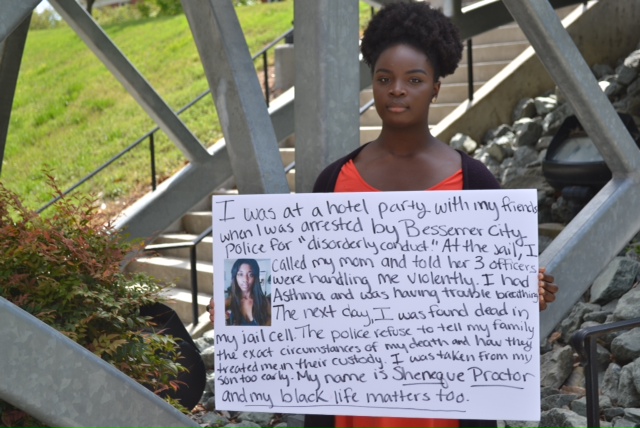 I was at a hotel party with my friends
when I was arrested by Bessemer City
Police for "disorderly conduct." At the jail, I
called my mom and told her 3 officers
were handling me violently. I had
Asthma and was having trouble breathing.
The next day, I was found dead in
my jail cell. The police refuse to tell my family
the exact circumstances of my death and how they
treated me in their custody. I was taken from my
son too early. My name is Sheneque Proctor
and my black life matters too.